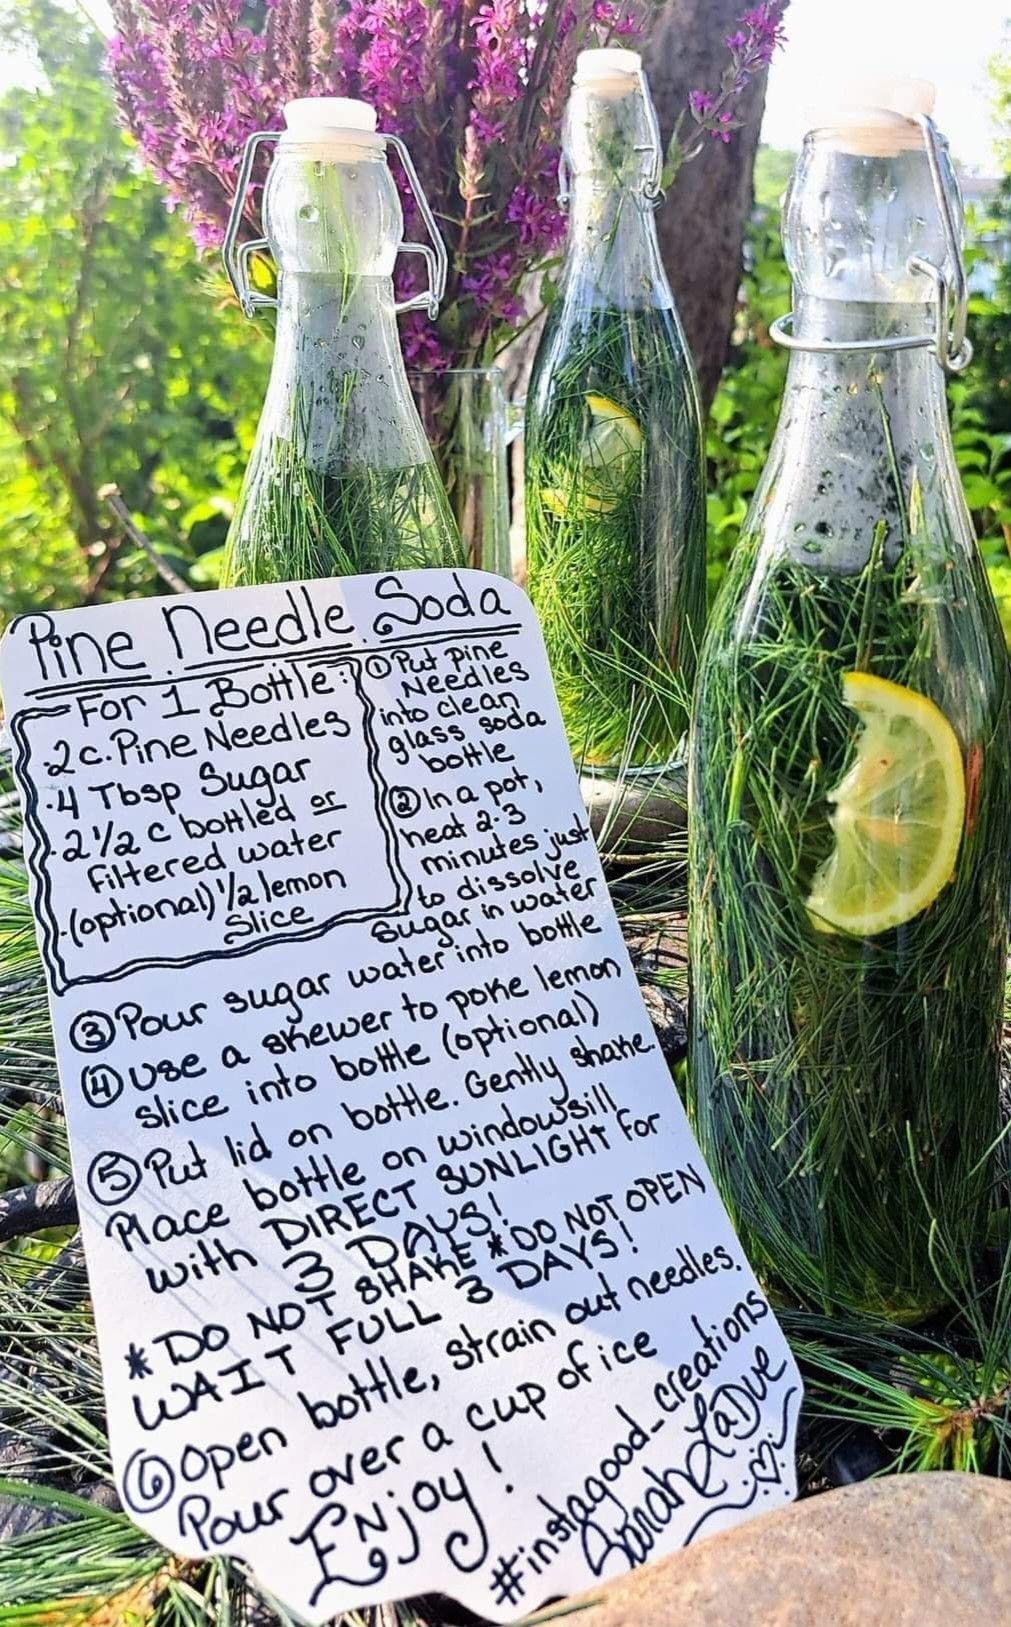 Pine Needle Soda
For 1 Bottle:
·2 c. Pine Needles
·4 Tbsp Sugar
·2 1/2 c bottled or
filtered water
·(optional) 1/2 lemon
Slice
① Put pine
Needles
into clean
glass soda
bottle
② In a pot,
heat 2-3
minutes just
to dissolve
sugar in water
③ Pour sugar water into bottle
④ use a skewer to poke lemon
slice into bottle (optional)
⑤ Put lid on bottle. Gently shake.
Place bottle on windowsill
with DIRECT SUNLIGHT for
3 DAYS!
*DO NOT SHAKE *DO NOT OPEN
WAIT FULL 3 DAYS!
⑥ Open bottle, strain out needles.
Pour over a cup of ice
Enjoy!
#instagood_creations
Sarah LaDue